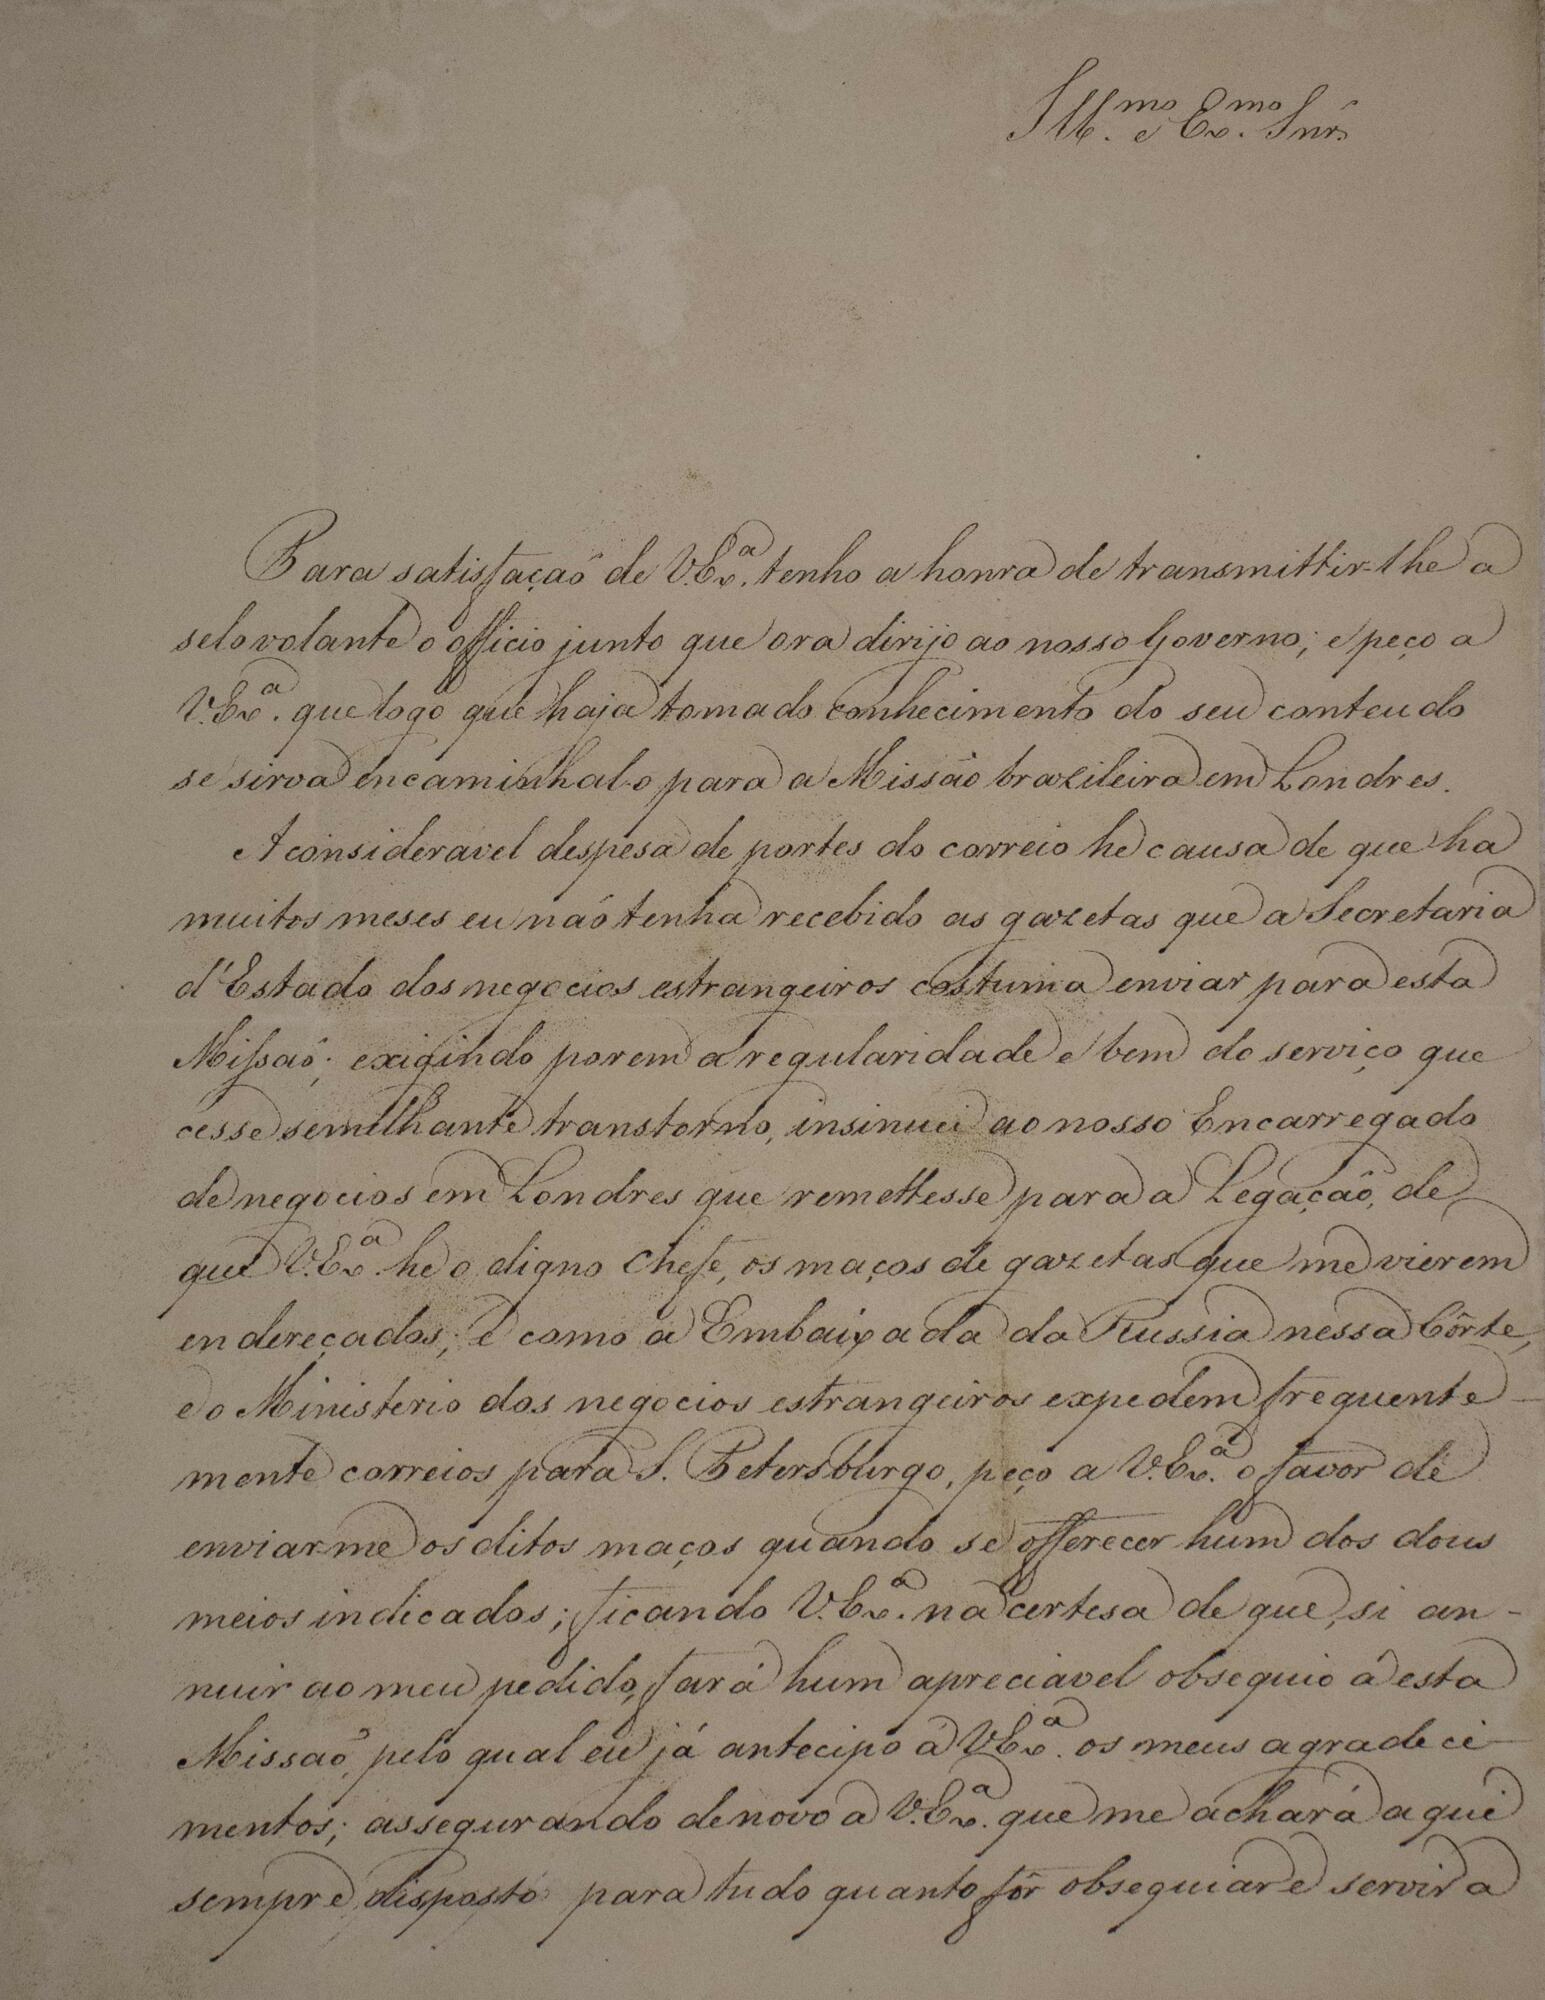 Ill.mo e Ex.mo Snr.
Para satisfaçaõ de V.Ex.a tenho a honra de transmittir-lhe a
selo volante o officio junto que ora dirijo ao nosso Governo; e peço a
V.Ex.a que logo que haja tomado conhecimento do seu conteudo
se sirva encaminhal-o para a Missão brazileira em Londres.
A consideravel despesa de portes do correio he causa de que ha
muitos meses eu não tenha recebido as gazetas que a Secretaria
d'Estado dos negocios estrangeiros costuma enviar para esta
Missaõ; exigindo porem a regularidade e bem do serviço que
cesse semilhante transtorno, insinuei ao nosso Encarregado
de negocios em Londres que remettesse para a Legaçaõ, de
que V.Ex.a he o digno Chefe, os maços de gazetas que me vierem
endereçados; e como a Embaixada da Russia nessa Côrte,
e o Ministerio dos negocios estrangeiros expedem frequente-
mente correios para S. Petersburgo, peço a V.Ex.a o favor de
enviar-me os ditos maços quando se offerecer hum dos dous
meios indicados; ficando V.Ex.a na certesa de que, si an-
nuir ao meu pedido, fará hum apreciavel obsequio á esta
Missaõ, pelo qual eu já antecipo á V.Ex.a os meus agradeci-
mentos; assegurando de novo a V.Ex.a que me achará aqui
sempre disposto para tudo quanto fôr obsequiar e servir a